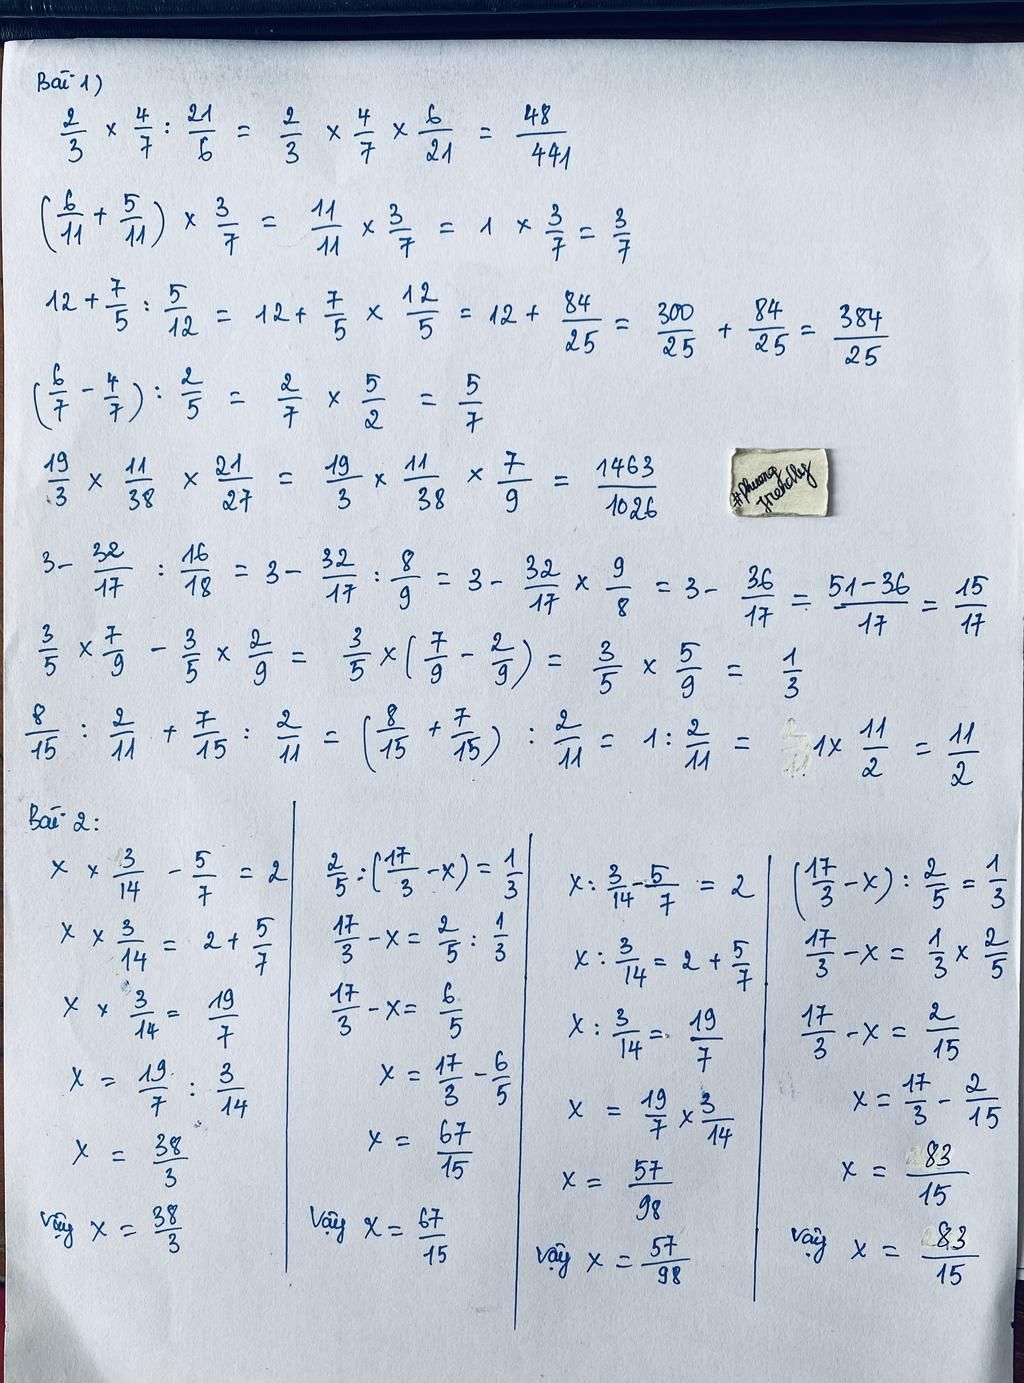 Bài 1)
2/3 × 4/7 : 21/6 = 2/3 × 4/7 × 6/21 = 48/441
(6/11 + 5/11) × 3/7 = 11/11 × 3/7 = 1 × 3/7 = 3/7
12 + 7/5 : 5/12 = 12 + 7/5 × 12/5 = 12 + 84/25 = 300/25 + 84/25 = 384/25
(6/7 - 4/7) : 2/5 = 2/7 × 5/2 = 5/7
19/3 × 11/38 × 21/27 = 19/3 × 11/38 × 7/9 = 1463/1026
#phuong friendly
3 - 32/17 : 16/18 = 3 - 32/17 : 8/9 = 3 - 32/17 × 9/8 = 3 - 36/17 = 51-36/17 = 15/17
3/5 × 7/9 - 3/5 × 2/9 = 3/5 × (7/9 - 2/9) = 3/5 × 5/9 = 1/3
8/15 : 2/11 + 7/15 : 2/11 = (8/15 + 7/15) : 2/11 = 1 : 2/11 = 1 × 11/2 = 11/2
Bài 2:
x × 3/14 - 5/7 = 2
x × 3/14 = 2 + 5/7
x × 3/14 = 19/7
x = 19/7 : 3/14
x = 38/3
Vậy x = 38/3
2/5 : (17/3 - x) = 1/3
17/3 - x = 2/5 : 1/3
17/3 - x = 6/5
x = 17/3 - 6/5
x = 67/15
Vậy x = 67/15
x : 3/14 - 5/7 = 2
x : 3/14 = 2 + 5/7
x : 3/14 = 19/7
x = 19/7 × 3/14
x = 57/98
Vậy x = 57/98
(17/3 - x) : 2/5 = 1/3
17/3 - x = 1/3 × 2/5
17/3 - x = 2/15
x = 17/3 - 2/15
x = 83/15
Vậy x = 83/15